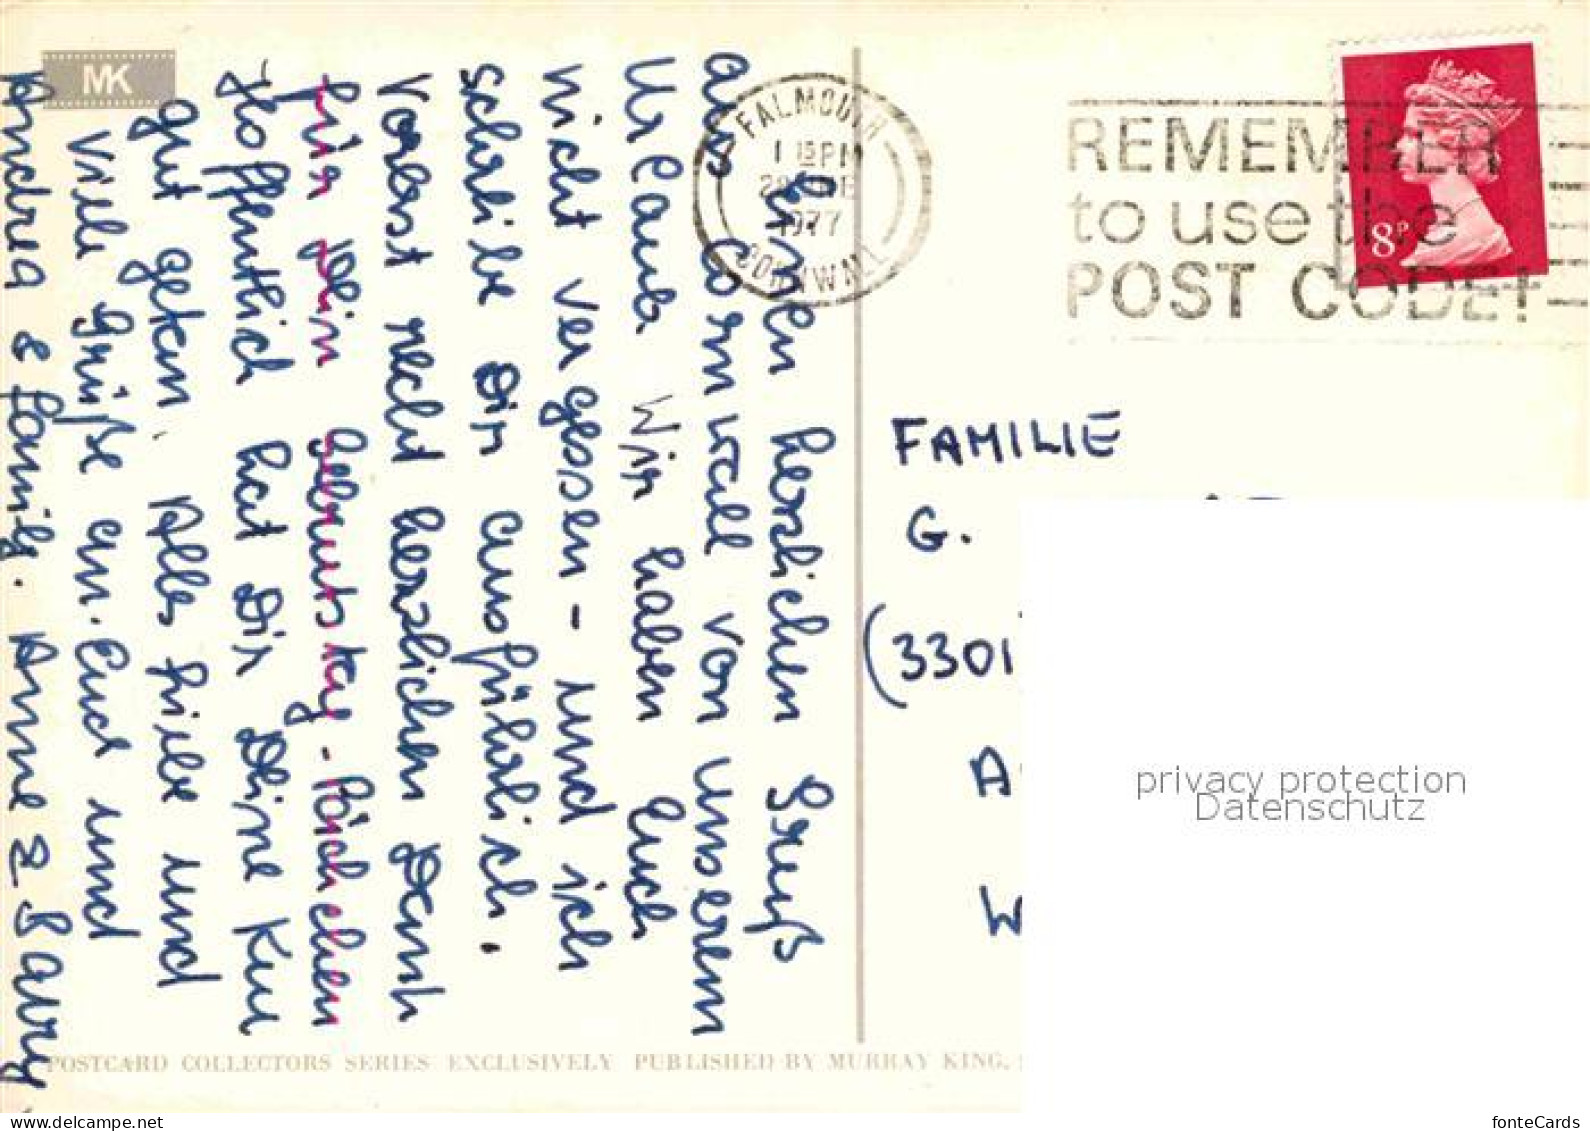 MK
aus
einen herzlichen Gruß
aus Cornwall von unserem
Urlaub Wir haben Euch
nicht vergessen - und ich
schreibe Dir ausführlich.
Vorerst recht herzlichen Dank
für Dein Geburtstag-
Hoffentlich hat Dir Deine Kur
gut getan. Alles Liebe und
Viele Grüße an Euch und
Andrea & Family. Anne & Barry
FALMOUTH
1 15 PM
1977
CORNWALL
REMEMBER
to use the
POST CODE!
8P
FAMILIE
G.
(3301
A
W
privacy protection
Datenschutz
POSTCARD COLLECTORS SERIES EXCLUSIVELY PUBLISHED BY MURRAY KING.
www.delcampe.net
fonteCards